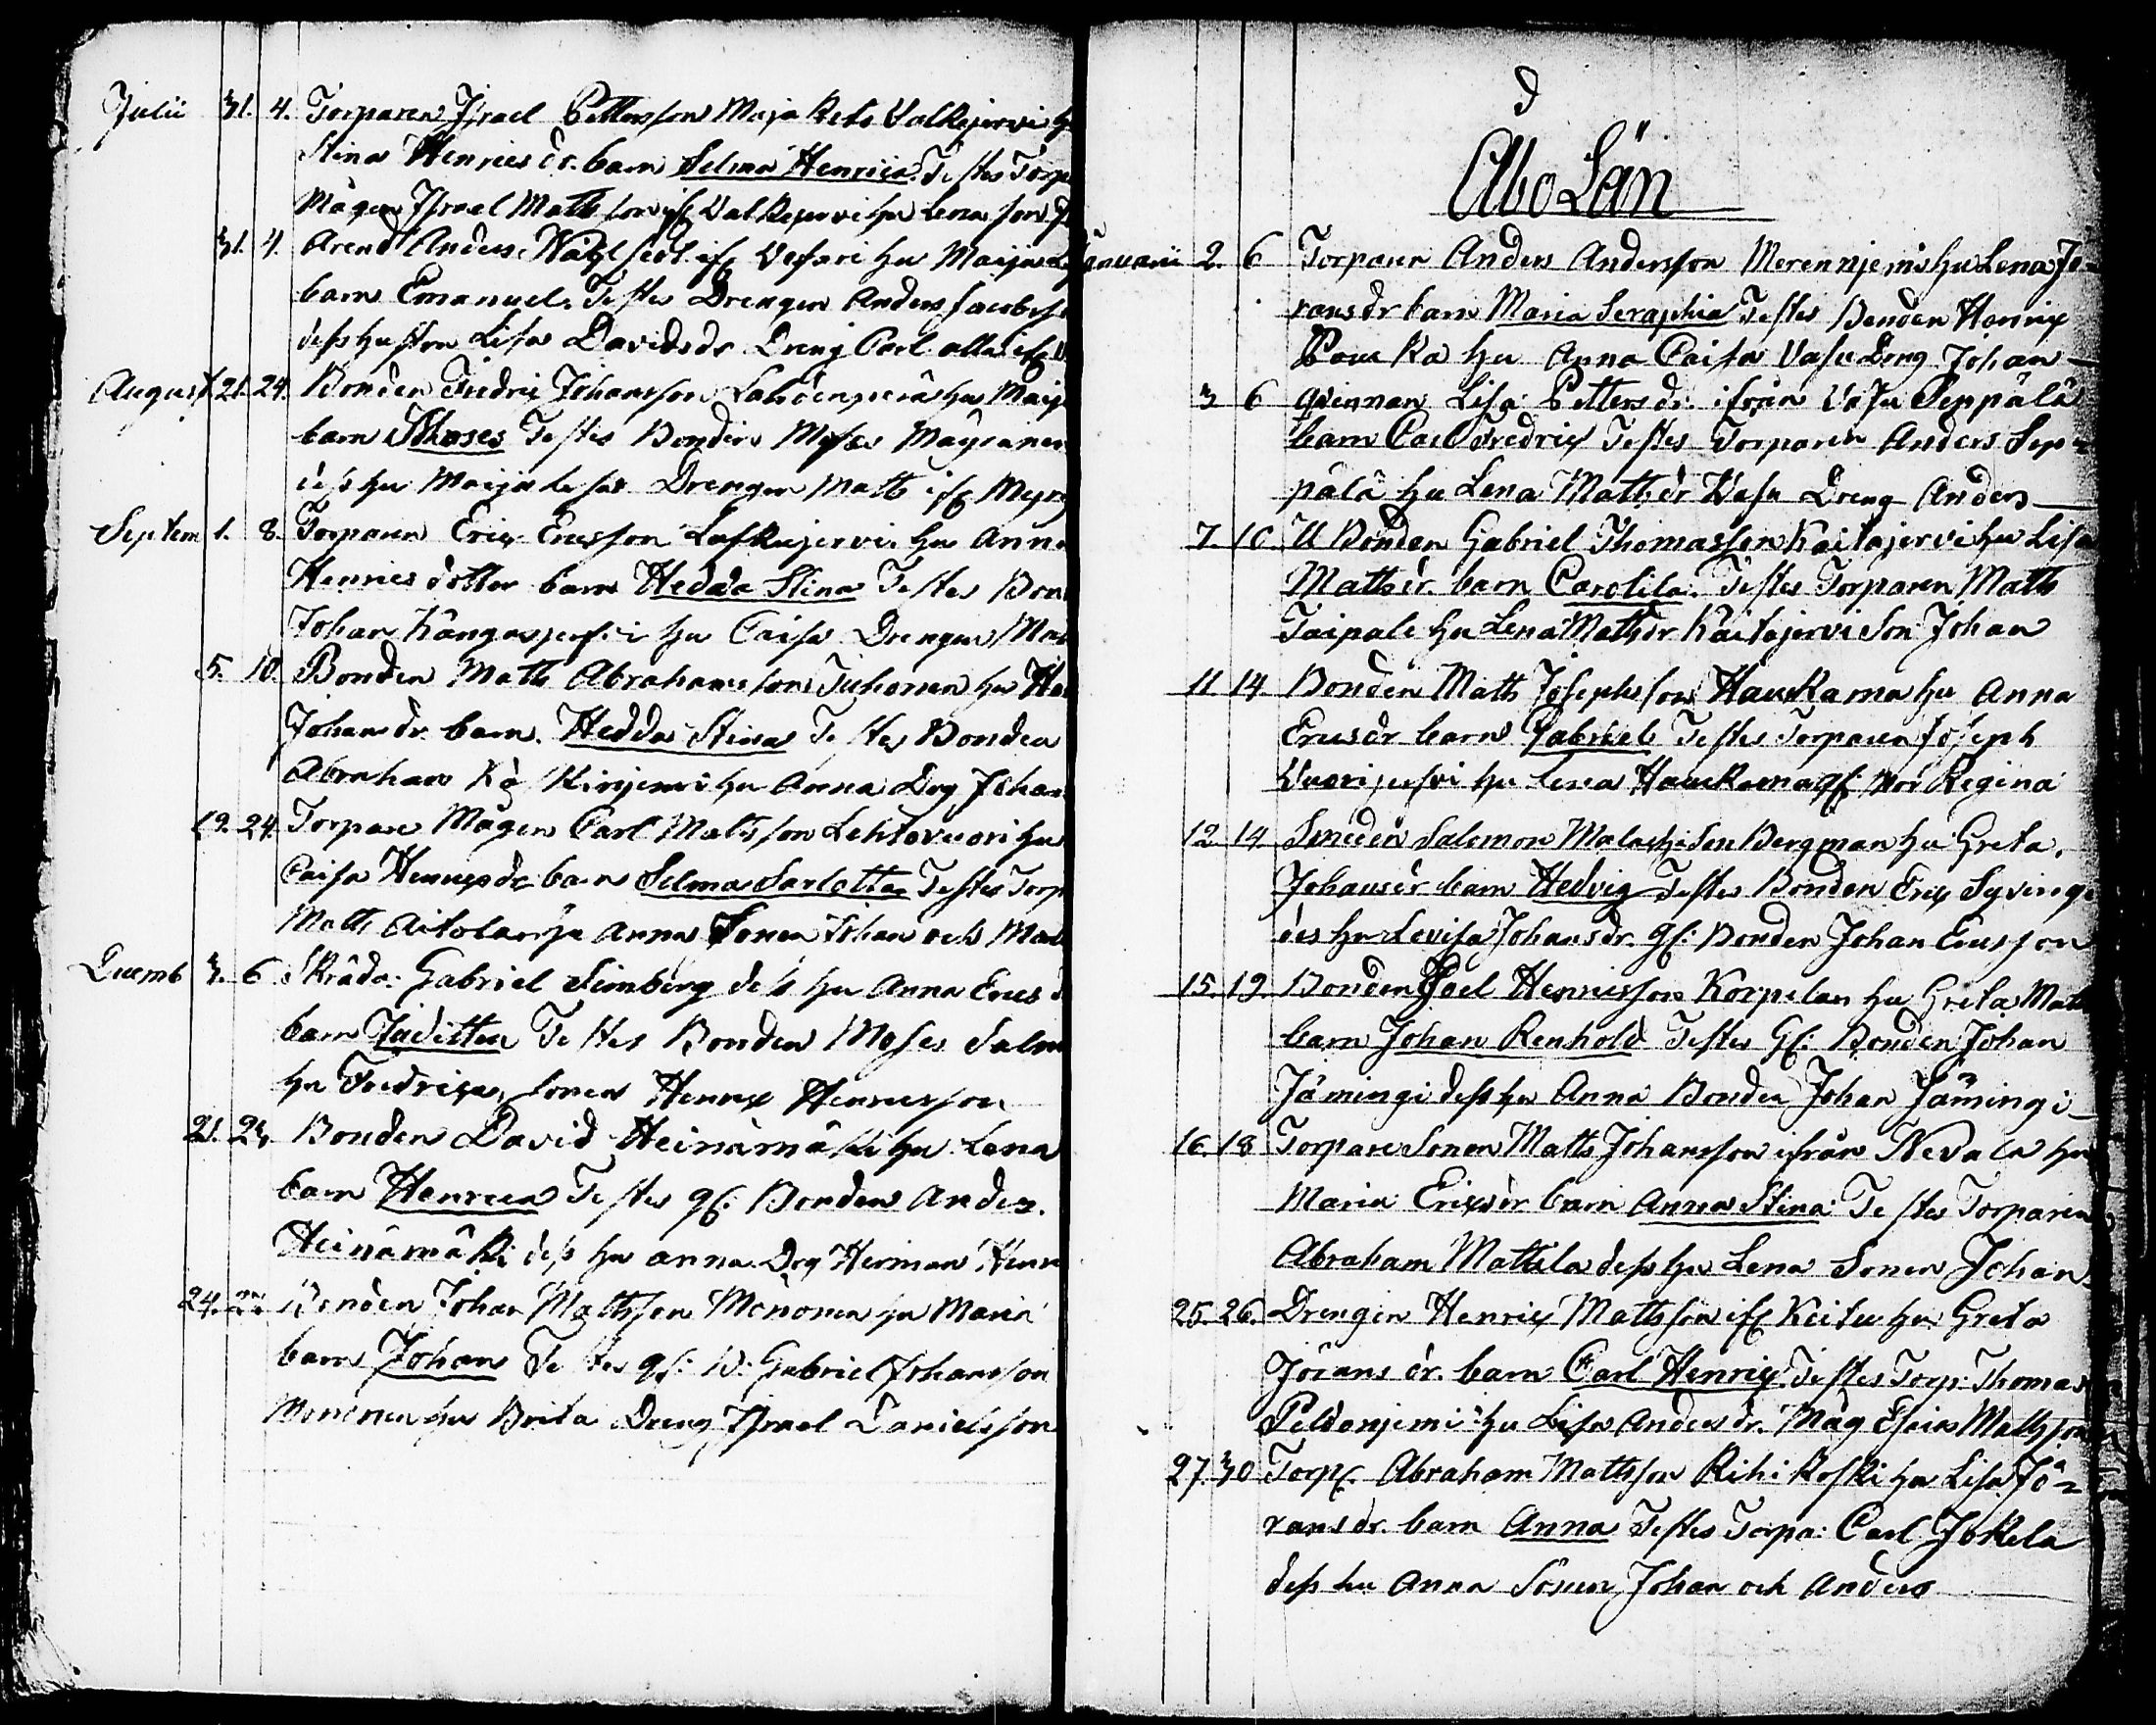 Julii 31. 4. Torparen Israel Pettersson Maja Keto Valkejervi hu
Stina Henrics dr. barn Selma Henrica. Testes Torp
Mågen Israel Matts son if Valkejervi hu Lena son J
31. 4. Arend Anders Wahlsted if Vesari hu Maija L
barn Emanuel. Testes Drengen Anders Jacobss
dess hustru Lisa Davids dr Dreng Carl alla if V
August 21. 24. Bonden Fredric Johansson Lahdenperä hu Maij
barn Moses Testes Bonden Moses Mäyränen
dess hu Maija Lisa Drengen Matts if Meyr
Septem 1. 8. Torparen Eric Ericsson Laskujervi hu Anna
Henrics dotter barn Hedda Stina Testes Bon
Johan Kangasjervi hu Caisa Drengen Mat
5. 10. Bonden Matts Abrahams son Tuhonen hu He
Johans dr barn Hedda Stina Testes Bonden
Abraham hu Anna Drg Johan
19. 24. Torpare Mågen Carl Matts son Lehtovuori hu
Caisa Henricsdr barn Selma Sarlotta Testes Torp
Matts Aitolax hu Anna Sonen Johan och Mat
Decemb 3. 6 Skrädd: Gabriel Simberg dess hu Anna Erics d
barn Judittea Testes Bonden Moses Salm
hu Fredrica, Sonen Henrix Henricsson
21. 24. Bonden David Heinämäki hu Lena
barn Henrica Testes gf: Bonden Anders
Heinämäki dess hu Anna Drg Herman Henr
24. 27. Bonden Johan Mattsson Mononen hu Maria
barn Johan Testes gf: B: Gabriel Johansson
Mononen hu Brita Dreng Israel Danielsson
Åbo Län
Januarii 2. 6 Torparen Anders Andersson Merennjemi hu Lena Jö-
rans dr barn Maria Seraphia Testes Bonden Henrix
Pouka hu Anna Caisa Vasu Dreng Johan
3 6 Qvinnan Lisa Petters dr. ifrån Vasu Seppälä
barn Carl Fredrix Testes Torparen Anders Sep-
pälä hu Lena Matts dr Vasu Dreng Anders
7. 10. U Bonden Gabriel Thomasson Kaitajervi hu Lisa
Matts dr. barn Carolila. Testes Torparen Matts
Taipale hu Lena Matts dr Kaitajervi Son Johan
11 14 Bonden Matts Josephsson Haukkama hu Anna
Erics dr barn Gabriel Testes Torparen Joseph
Vuorijervi hu Lena Haukkama gf: Mor Regina
12. 14 Smeden Salomon Malachisen Bergman hu Greta.
Johans dr barn Hedvig Testes Bonden Erix Syvinge
des hu Lovisa Johans dr. gf: Bonden Johan Ericsson
15. 19. Bonden Joel Henricsson Korpelan hu Greta Mats
barn Johan Renhold Testes Gf: Bonden Johan
Jämingi dess hu Anna Bonden Johan Jämingi
16. 18 Torpare Sonen Matts Johansson ifrån Nevala hu
Maria Erics dr barn Anna Stina Testes Torparen
Abraham Mattila dess hu Lena Sonen Johan
25. 26. Drengen Henrix Mattsson if Keitu hu Greta
Jörans dr. barn Carl Henrix. Testes Torp: Thomas
Peldonjemi hu Lisa Anders dr. Måg Esaias Mattsson
27. 30 Torp: Abraham Mattsson Rihikoski hu Lisa Jö-
rans dr. barn Anna Testes Torpa: Carl Jokela
dess hu Anna Sonen Johan och Anders